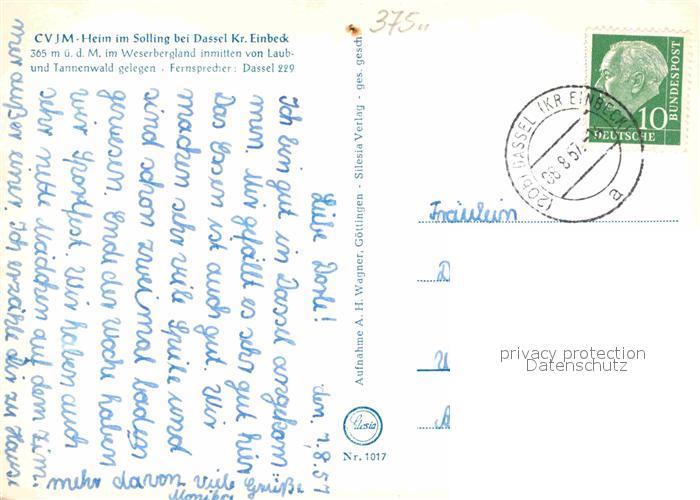 CVJM-Heim im Solling bei Dassel Kr. Einbeck
365 m ü. d. M. im Weserbergland inmitten von Laub-
und Tannenwald gelegen · Fernsprecher: Dassel 229
375,,
den, 7.8.57
Liebe Dorle!
Ich bin gut in Dassel angekom
men. Mir gefällt es sehr gut hier
Das Essen ist auch gut. Wir
machen sehr viele Spiele und
sind schon zweimal baden
gewesen. Ende der Woche haben
wir Sportfest. Wir haben auch
sehr nette Mädchen auf dem Zim-
mer außer einer. Ich erzähle dir zu Hause
mehr davon viele Grüße
Monika
Aufnahme A. H. Wagner, Göttingen - Silesia Verlag - ges. gesch
Silesia
Nr. 1017
DEUTSCHE
BUNDESPOST
10
(20b) DASSEL (KR EINBECK)
08.8.57
a
Fräulein
D
U
A
privacy protection
Datenschutz